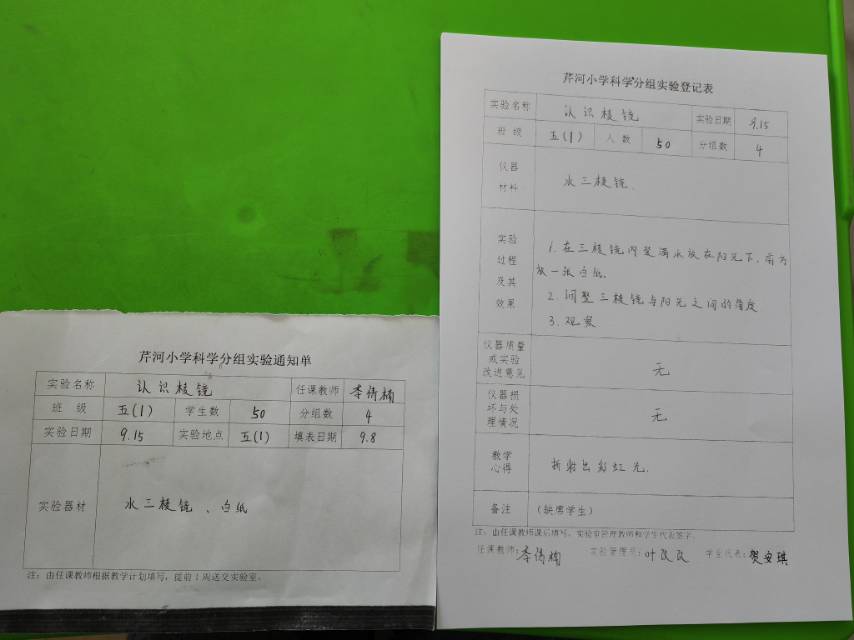 芹河小学科学分组实验通知单
实验名称 认识棱镜 任课教师 李倩楠
班 级 五(1) 学生数 50 分组数 4
实验日期 9.15 实验地点 五(1) 填表日期 9.8
实验器材 水三棱镜、白纸
注：由任课教师根据教学计划填写，提前1周送交实验室。
芹河小学科学分组实验登记表
实验名称 认识棱镜 实验日期 9.15
班 级 五(1) 人 数 50 分组数 4
仪器
材料
水三棱镜.
实验
过程
及其
效果
1. 在三棱镜内装满水放在阳光下,前方
放一张白纸.
2. 调整三棱镜与阳光之间的角度
3. 观察
仪器质量
或实验
改进意见
无
仪器损
坏与处
理情况
无
教学
心得
折射出彩虹光.
备注 (缺席学生)
注：由任课教师课后填写，实验室管理教师和学生代表签字。
任课教师：李倩楠 实验管理员：叶改改 学生代表：贺安琪